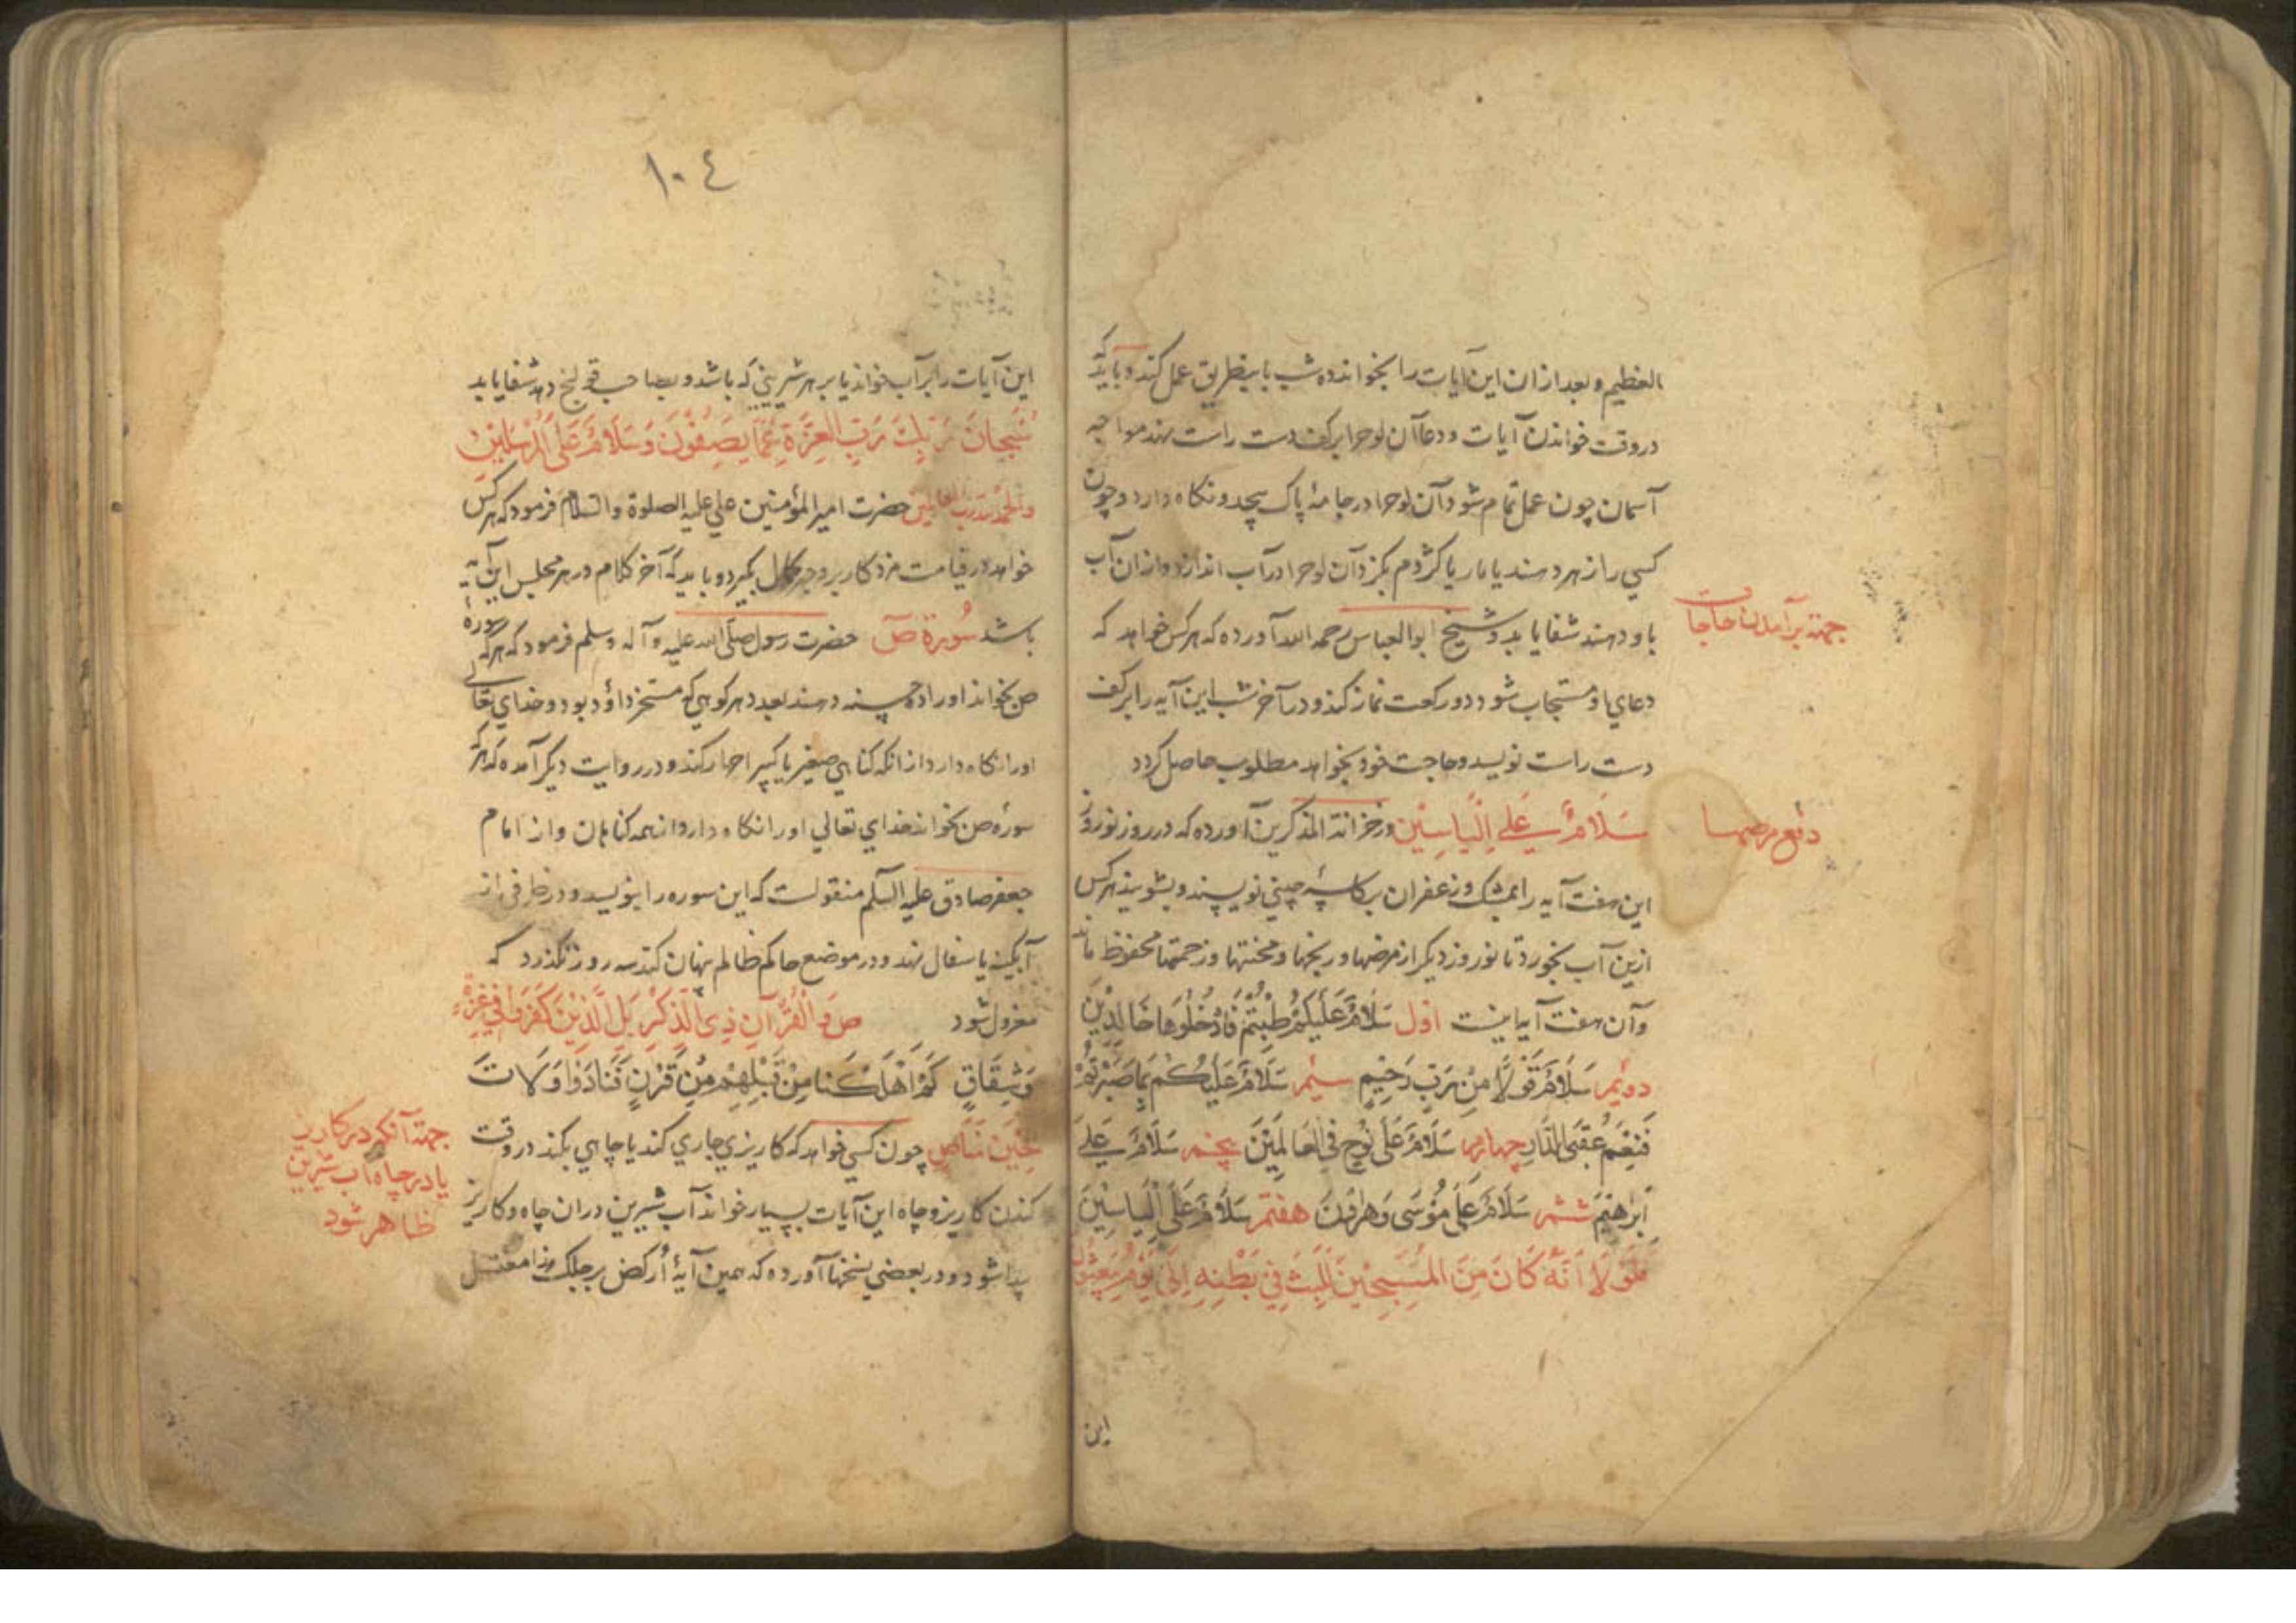 العظیم و بعد ازان این آیات را بخواند ده شب باینطریق عمل کند و باید که
در وقت خواندن آیات و دعا آن لوح را بر کف دست راست نهد مواجه
آسمان چون عمل تمام شود آن لوح را در جامهٔ پاک پیچد و نگاه دارد و چون
کسی را زهر دهند یا مار یا کژدم بگزد آن لوح را در آب اندازد و ازان آب
باو دهند شفا یابد و شیخ ابوالعباس رحمه الله آورده که هر کس خواهد که
جهة برآمدن حاجات
دعای او مستجاب شود دو رکعت نماز کند و در آخر شب این آیه را بر کف
دست راست نویسد و حاجت خود بخواهد مطلوب حاصل گردد
سَلَامٌ عَلٰی اِلْیَاسِیْنَ در خزانة المذکرین آورده که در روز نوروز
دفع مرضها
این هفت آیه را بمشک و زعفران بر کاسهٔ چینی نویسند و بشویند هر کس
ازین آب بخورد تا نوروز دیگر از مرضها و رنجها و محنتها و زحمتها محفوظ ماند
و آن هفت آیه اینست اول سَلَامٌ عَلَیْکُمْ طِبْتُمْ فَادْخُلُوهَا خَالِدِیْنَ
دویم سَلَامٌ قَوْلًا مِنْ رَبٍّ رَحِیْمٍ سیم سَلَامٌ عَلَیْکُمْ بِمَا صَبَرْتُمْ
فَنِعْمَ عُقْبَی الدَّارِ چهارم سَلَامٌ عَلَی نُوْحٍ فِی الْعَالَمِیْنَ پنجم سَلَامٌ عَلٰی
اِبْرٰهِیْمَ ششم سَلَامٌ عَلَی مُوْسَی وَهٰرُوْنَ هفتم سَلَامٌ عَلَی اِلْیَاسِیْنَ
فَلَوْلَا اَنَّهُ کَانَ مِنَ الْمُسَبِّحِیْنَ لَلَبِثَ فِیْ بَطْنِهِ اِلَی یَوْمِ یُبْعَثُوْنَ
این
١٠٤
این آیات را بر آب خواند یا بر هر شیرینی که باشد و بصاحب قولنج دهد شفا یابد
سُبْحَانَ رَبِّكَ رَبِّ الْعِزَّةِ عَمَّا یَصِفُوْنَ وَسَلَامٌ عَلَی الْمُرْسَلِیْنَ
والحمد لله رب العالمین حضرت امیر المؤمنین علی علیه الصلوة والسلام فرمود که هر کس
خواهد در قیامت مزد کار بر وجه کمال بگیرد و باید که آخر کلام در هر مجلس این آیه
باشد سُورة صٓ حضرت رسول صلی الله علیه و آله وسلم فرمود که هر که سورهٔ
ص بخواند او را ده حسنه دهند بعدد هر کوهی که مسخر داؤد بود و خدای تعالی
او را نگاه دارد از آنکه گناهی صغیر یا کبیر اصرار کند و در روایت دیگر آمده که هر که
سورهٔ ص بخواند خدای تعالی او را نگاه دارد از همه گناهان و از امام
جعفر صادق علیه السلم منقولست که این سوره را بنویسد و در ظرفی از
آبگینه یا سفال نهد و در موضع حاکم ظالم پنهان کند سه روز نگذرد که
معزول شود ص وَالْقُرْآنِ ذِی الذِّکْرِ بَلِ الَّذِیْنَ کَفَرُوْا فِیْ عِزَّةٍ
وَشِقَاقٍ کَمْ اَهْلَکْنَا مِنْ قَبْلِهِمْ مِنْ قَرْنٍ فَنَادَوْا وَلَاتَ
حِیْنَ مَنَاصٍ چون کسی خواهد که کاریزی جاری کند یا چاهی بکند در وقت
جهة آنکه در کاریز
یا در چاه آب شیرین
ظاهر شود
کندن کاریز و چاه این آیات بسیار خواند آب شیرین دران چاه و کاریز
پیدا شود و در بعضی نسخها آورده که همین آیهٔ اُرکض برجلك هذا مغتسل